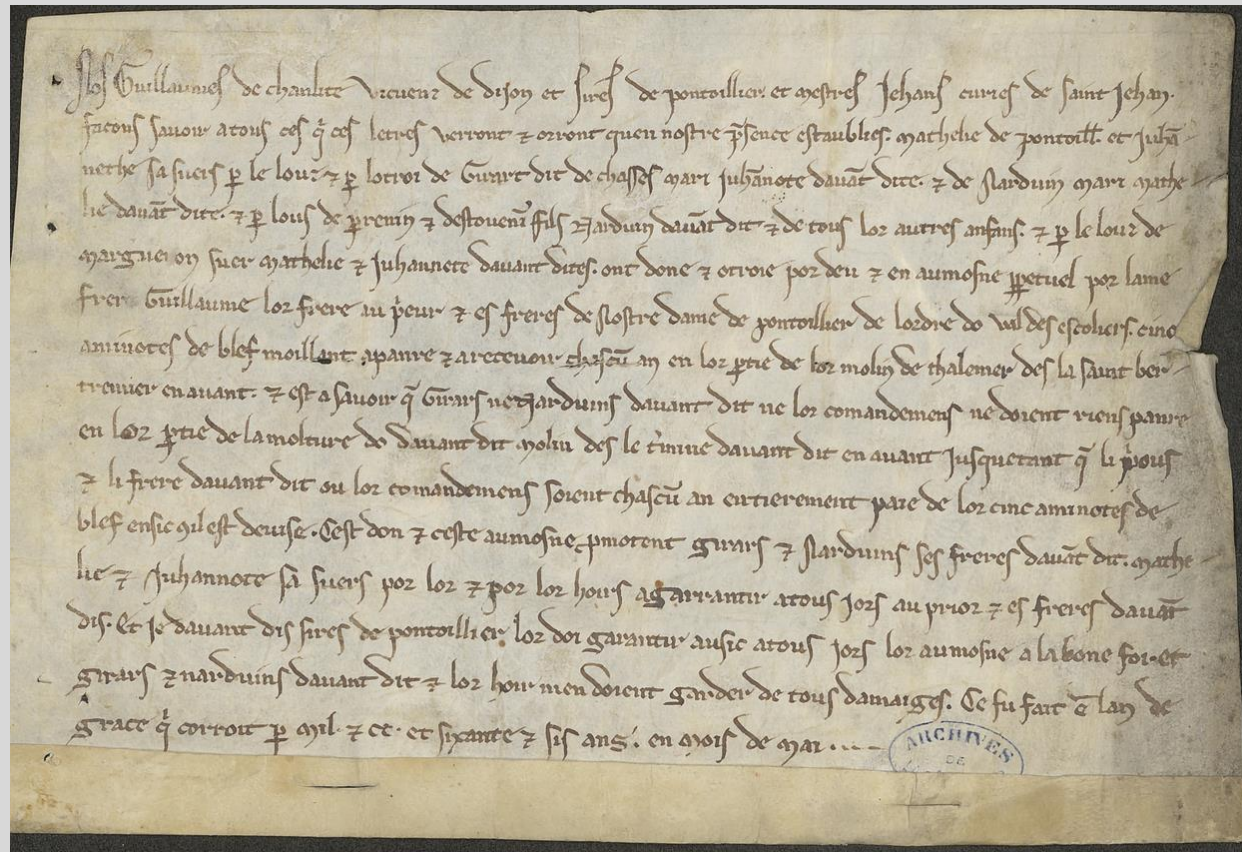 Nos Guillaumes de chanlite vicuenz de dijon et sires de pontoillier. et mestres Jehans curies de saint Jehan.
façons savoir a tous ces q̃ ces letres verront ⁊ orront quen nostre p̃sence establies. mathelie de pontoill̃. et Juhã
nethe sa suers ꝑ le lour ⁊ ꝑ lotroi de Girart dit de chasses mari Juhãnote davãt dite. ⁊ de Narduin mari mathe
lie davãt dite. ⁊ ꝑ lous de ꝑrenin ⁊ destovenĩ fils Narduin davãt dit ⁊ de tous lor autres anfans. ⁊ ꝑ le lour de
suer mathelie ⁊ Juhannete davant dites. ont done ⁊ otroie por deu ⁊ en aumosne ꝑpetuel por lame
frer Guillaume lor frere au p̃eur ⁊ es freres de Nostre dame de pontoillier de lordre do Val des escoliers. cinc
aminotes de blef moillant apanre ⁊ a recevoir chascũ an en lor ꝑtie de lor molin de thalemer des la saint ber
tremier en avant. ⁊ est a savoir q̃ Girars ne Narduins davant dit ne lor comandemens ne doient riens panre
en lor ꝑtie de la molture do davant dit molin des le t̃mine davant dit en avant Jusquetant q̃ li p̃ous
⁊ li frere davant dit ou lor comandemens soient chascũ an entierement paie de lor cinc aminotes de
blef ensic quil est devise. Cest don ⁊ ceste aumosne ꝓmotent girars ⁊ Narduins ses freres davãt dit. mathe
lie ⁊ Juhannote sa suers por lor ⁊ por lor hoirs a garrantir a tous Jors au prior ⁊ es freres davãt
dis. Et Je davant dis sires de pontoillier lor doi garantir ausic a tous Jors lor aumosne a la bone foi. et
girars ⁊ narduins davant dit ⁊ lor hoir men doient garder de tous damaiges. Ce fu fait ẽ lan de
grace q̃ corroit ꝑ mil ⁊ cc. et sixante ⁊ sis ans. en mois de mai....
ARCHIVES
DE